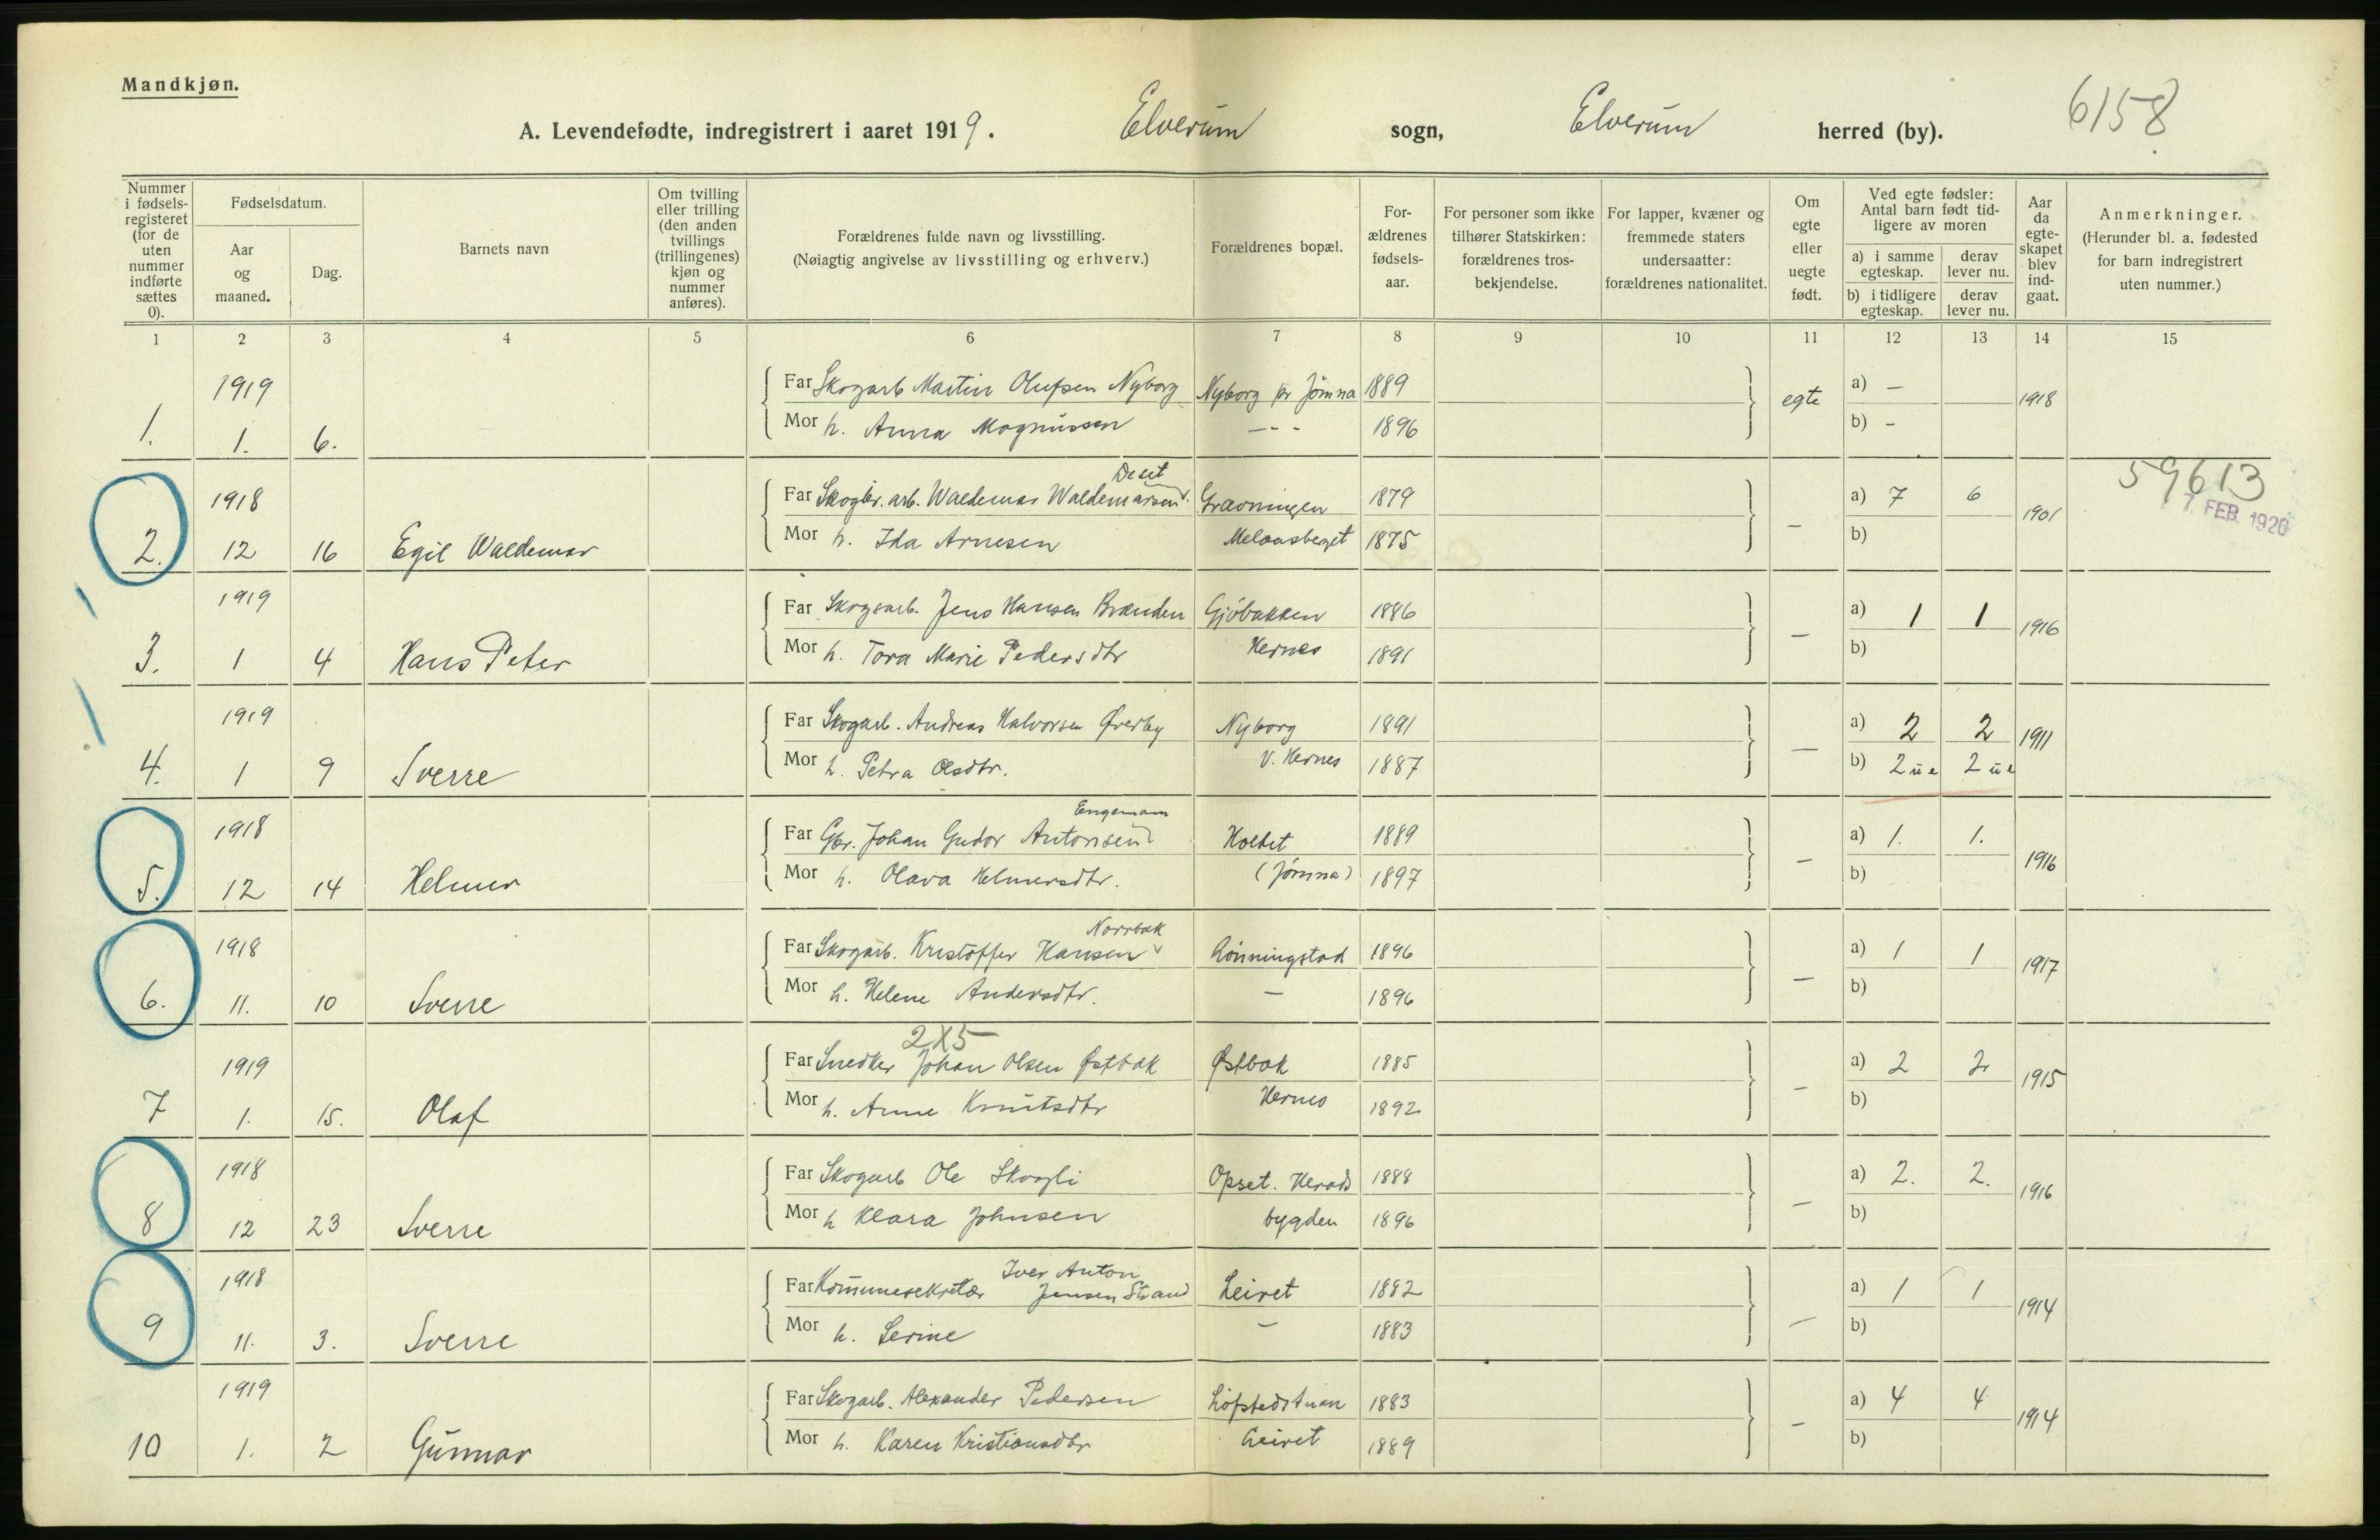 Mandkjøn.
A. Levendefødte, indregistrert i aaret 1919. Elverum sogn, Elverum herred (by). 6158
Nummer i fødsels-registeret (for de uten nummer indførte sættes 0).
Fødselsdatum.
Aar og maaned.
Dag.
Barnets navn
Om tvilling eller trilling (den anden tvillings (trillingenes) kjøn og nummer anføres).
Forældrenes fulde navn og livsstilling.
(Nøiagtig angivelse av livsstilling og erhverv.)
Forældrenes bopæl.
For-ældrenes fødsels-aar.
For personer som ikke tilhører Statskirken: forældrenes tros-bekjendelse.
For lapper, kvæner og fremmede staters undersaatter: forældrenes nationalitet.
Om egte eller uegte født.
Ved egte fødsler: Antal barn født tid-ligere av moren
a) i samme egteskap. derav lever nu.
b) i tidligere egteskap. derav lever nu.
Aar da egte-skapet blev ind-gaat.
Anmerkninger.
(Herunder bl. a. fødested for barn indregistrert uten nummer.)
1 2 3 4 5 6 7 8 9 10 11 12 13 14 15
1919 Far Skogarb Martin Olufsen Nyborg Nyborg pr Jømna 1889 egte a) — 1918
1. 1. 6. Mor h. Anna Magnussen — - - 1896 b) -
Deset 59613
1918 Far Skogbr. arb. Waldemar Waldemarsen Gravningen 1879 — a) 7 6 1901 7. FEB. 1920
2. 12 16 Egil Waldemar Mor h. Ida Arnesen Melaasberget 1875 b)
1919 Far Skogsarb. Jens Hansen Brænden Gjøbakken 1886 — a) 1 1 1916
3. 1 4 Hans Peter Mor h. Tora Marie Pedersdtr Hernes 1891 b)
1919 Far Skogarb. Andreas Halvorsen Øverby Nyborg 1891 — a) 2 2 1911
4. 1 9 Sverre Mor h. Petra Olsdtr. V. Hernes 1887 b) 2 ue 2 ue
Engemam
1918 Far Gbr. Johan Gudor Antonsen Holtet 1889 — a) 1. 1. 1916
5. 12 14 Helmer Mor h. Olava Helmersdtr. (Jømna) 1897 b)
Norrbak
1918 Far Skogarb. Kristoffer Hansen Rønningstad 1896 — a) 1 1 1917
6. 11. 10 Sverre Mor h. Helene Andersdtr. — 1896 b)
2X5
1919 Far Snedker Johan Olsen Østbak Østbak 1885 — a) 2 2 1915
7 1. 15. Olaf Mor h. Anne Knutsdtr Hernes 1892 b)
1918 Far Skogarb Ole Skogli Opset. Herads 1888 — a) 2. 2. 1916
8 12 23 Sverre Mor h Klara Johnsen bygden 1896 b)
Iver Anton
1918 Far Kommunesekretær Jensen Strand Leiret 1882 — a) 1 1 1914
9 11. 3. Sverre Mor h. Serine — 1883 b)
1919 Far Skogarb. Alexander Pedersen Løfstedstuen 1883 — a) 4 4 1914
10 1. 2 Gunnar Mor h. Karen Kristiansdtr Leiret 1889 b)